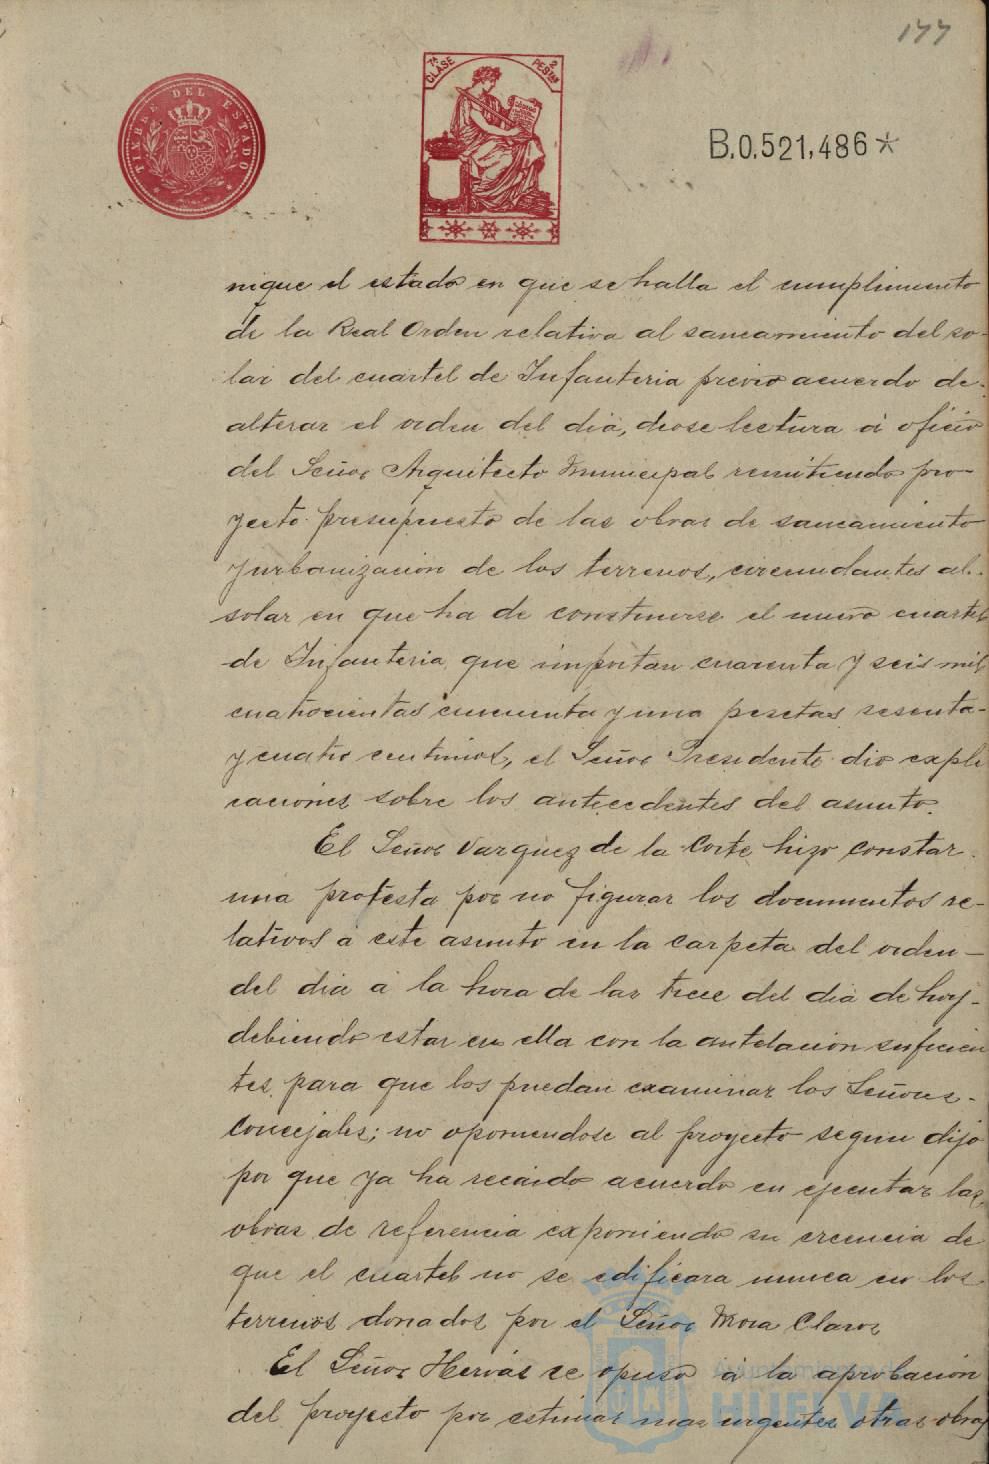 177
TIMBRE DEL ESTADO
7ª CLASE 2 PESTAS
B.0.521,486*
nique el estado en que se halla el cumplimiento
de la Real Orden relativa al saneamiento del so-
lar del cuartel de Infanteria previo acuerdo de-
alterar el orden del dia, diose lectura á oficio
del Señor Arquitecto Municipal remitiendo pro-
yecto presupuesto de las obras de saneamiento
y urbanización de los terrenos, circundantes al-
solar en que ha de construirse el nuevo cuartel
de Infanteria, que importan cuarenta y seis mil
cuatrocientas cincuenta y una pesetas sesenta-
y cuatro centimos, el Señor Presidente dio expli
caciones sobre los antecedentes del asunto.
El Señor Vazquez de la Corte hizo constar
una protesta por no figurar los documentos re-
lativos a este asunto en la carpeta del orden-
del dia á la hora de las trece del dia de hoy-
debiendo estar en ella con la antelación suficien
tes para que los puedan examinar los Señores-
Concejales; no oponiendose al proyecto segun dijo
por que ya ha recaido acuerdo en ejecutar las
obras de referencia exponiendo su creencia de
que el cuartel no se edificara nunca en los
terrenos donados por el Señor Mora Claros
El Señor Hervás se opuso á la aprobación
del proyecto por estimar mas urgentes otras obras
Ayuntamiento de
HUELVA